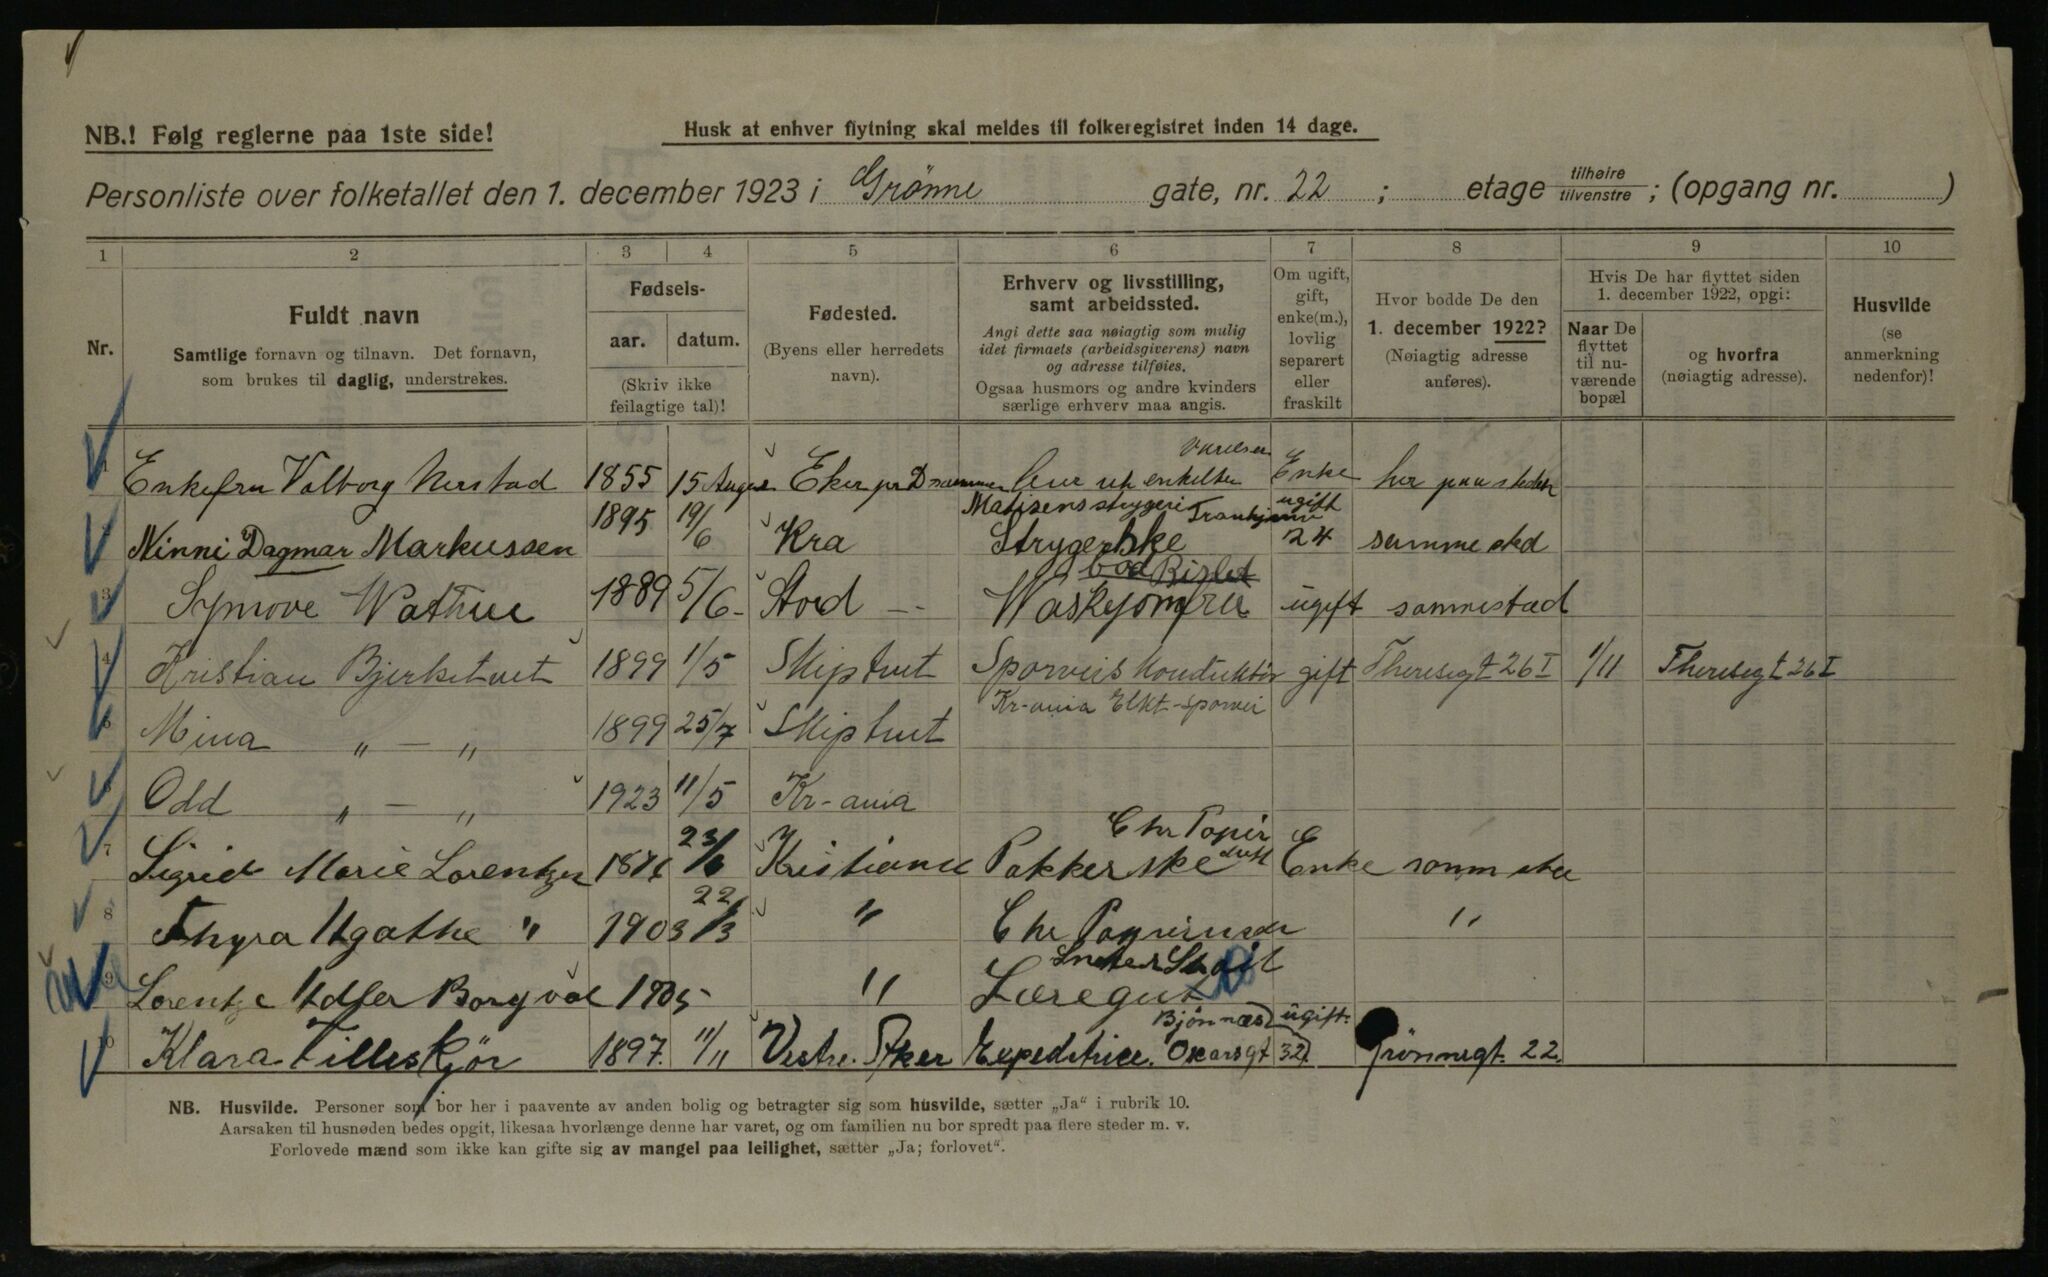 NB.! Følg reglerne paa 1ste side!
Husk at enhver flytning skal meldes til folkeregistret inden 14 dage.
Personliste over folketallet den 1. december 1923 i Grønne gate, nr. 22 ; etage tilhøire tilvenstre ; (opgang nr. )
1 2 3 4 5 6 7 8 9 10
Nr.
Fuldt navn
Samtlige fornavn og tilnavn. Det fornavn,
som brukes til daglig, understrekes.
Fødsels-
aar. datum.
(Skriv ikke
feilagtige tal)!
Fødested.
(Byens eller herredets
navn).
Erhverv og livsstilling,
samt arbeidssted.
Angi dette saa nøiagtig som mulig
idet firmaets (arbeidsgiverens) navn
og adresse tilføies.
Ogsaa husmors og andre kvinders
særlige erhverv maa angis.
Om ugift,
gift,
enke(m.),
lovlig
separert
eller
fraskilt
Hvor bodde De den
1. december 1922?
(Nøiagtig adresse
anføres).
Hvis De har flyttet siden
1. december 1922, opgi:
Naar De
flyttet
til nu-
værende
bopæl
og hvorfra
(nøiagtig adresse).
Husvilde
(se
anmerkning
nedenfor)!
Enkefru Valborg 1855 15 August Eker pr Drammen enkelte Værelser Enke her paa stedet
2 Ninni Dagmar Markussen 1895 19/6 Kra Strygerske ugift samme sted
24
3 Synnove 1889 5/6 Stord Bislet ugift sammestad
4 Kristian Bjerketvet 1899 1/5 Skiptvet Sporveis Konduktør gift Theresegt 26 I 1/11 Theresegt 26 I
Kr-ania Elkt-sporvei
5 Mina " — " 1899 25/7 Skiptvet
6 Odd " — " 1923 11/5 Kr-ania
7 Sigrid Marie Lorentzen 23/6 Kristiania Pakkerske Chr Papir Enke samm
8 Thyra Agathe " 1903 22/3 " Chr "
9 Lorentze Adler 1905 " Læregut
10 Klara Tilleskjør 1897. 11/11 Vestre. Aker Expeditrice. Bjönnæs Oscarsgt 32. ugift. Grønnegt. 22.
NB. Husvilde. Personer som bor her i paavente av anden bolig og betragter sig som husvilde, sætter „Ja“ i rubrik 10.
Aarsaken til husnøden bedes opgit, likesaa hvorlænge denne har varet, og om familien nu bor spredt paa flere steder m. v.
Forlovede mænd som ikke kan gifte sig av mangel paa leilighet, sætter „Ja; forlovet“.